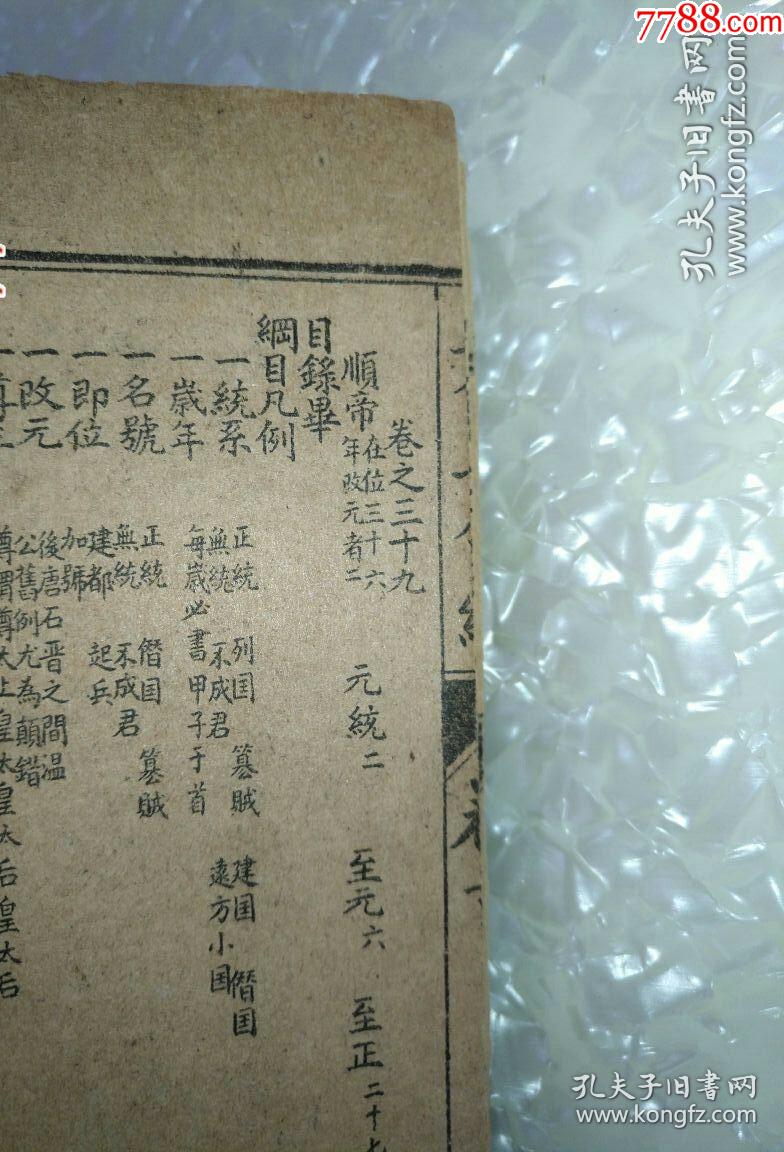 7788.com
孔夫子旧书网
www.kongfz.com
卷之三十九
順帝 在位三十六年改元者二 元統二 至元六 至正二十七
目錄畢
綱目凡例
一統系 正統 列囯 篡賊 建囯 僭囯
無統 不成君 遠方小囯
一歲年 每歲必書甲子于首
一名號 正統 僭囯 篡賊
無統 不成君
一即位 建都 起兵
加號
一改元 後唐石晋之間温
公舊例尤為顛錯
尊謂尊太上皇太皇太后皇太后
孔夫子旧书网
www.kongfz.com